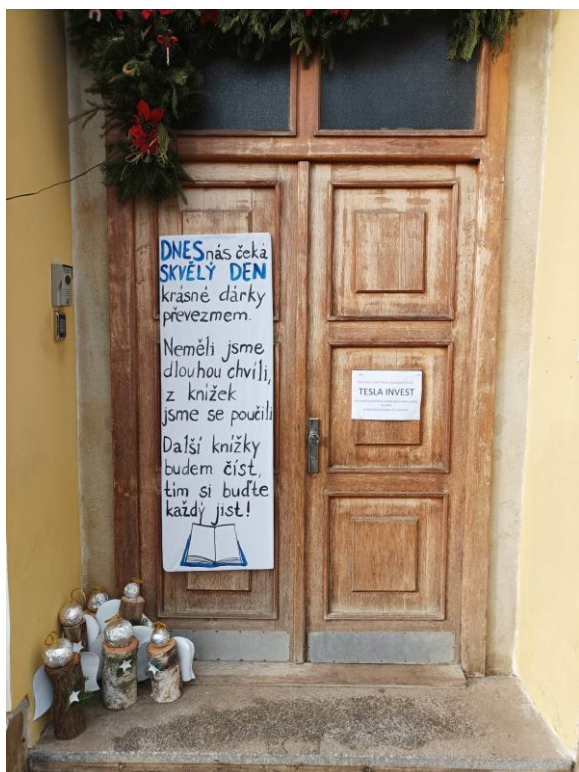 DNES nás čeká
SKVĚLÝ DEN
krásné dárky
převezmem.
Neměli jsme
dlouhou chvíli,
z knížek
jsme se poučili
Další knížky
budem číst,
tím si buďte
každý jist!
TESLA INVEST